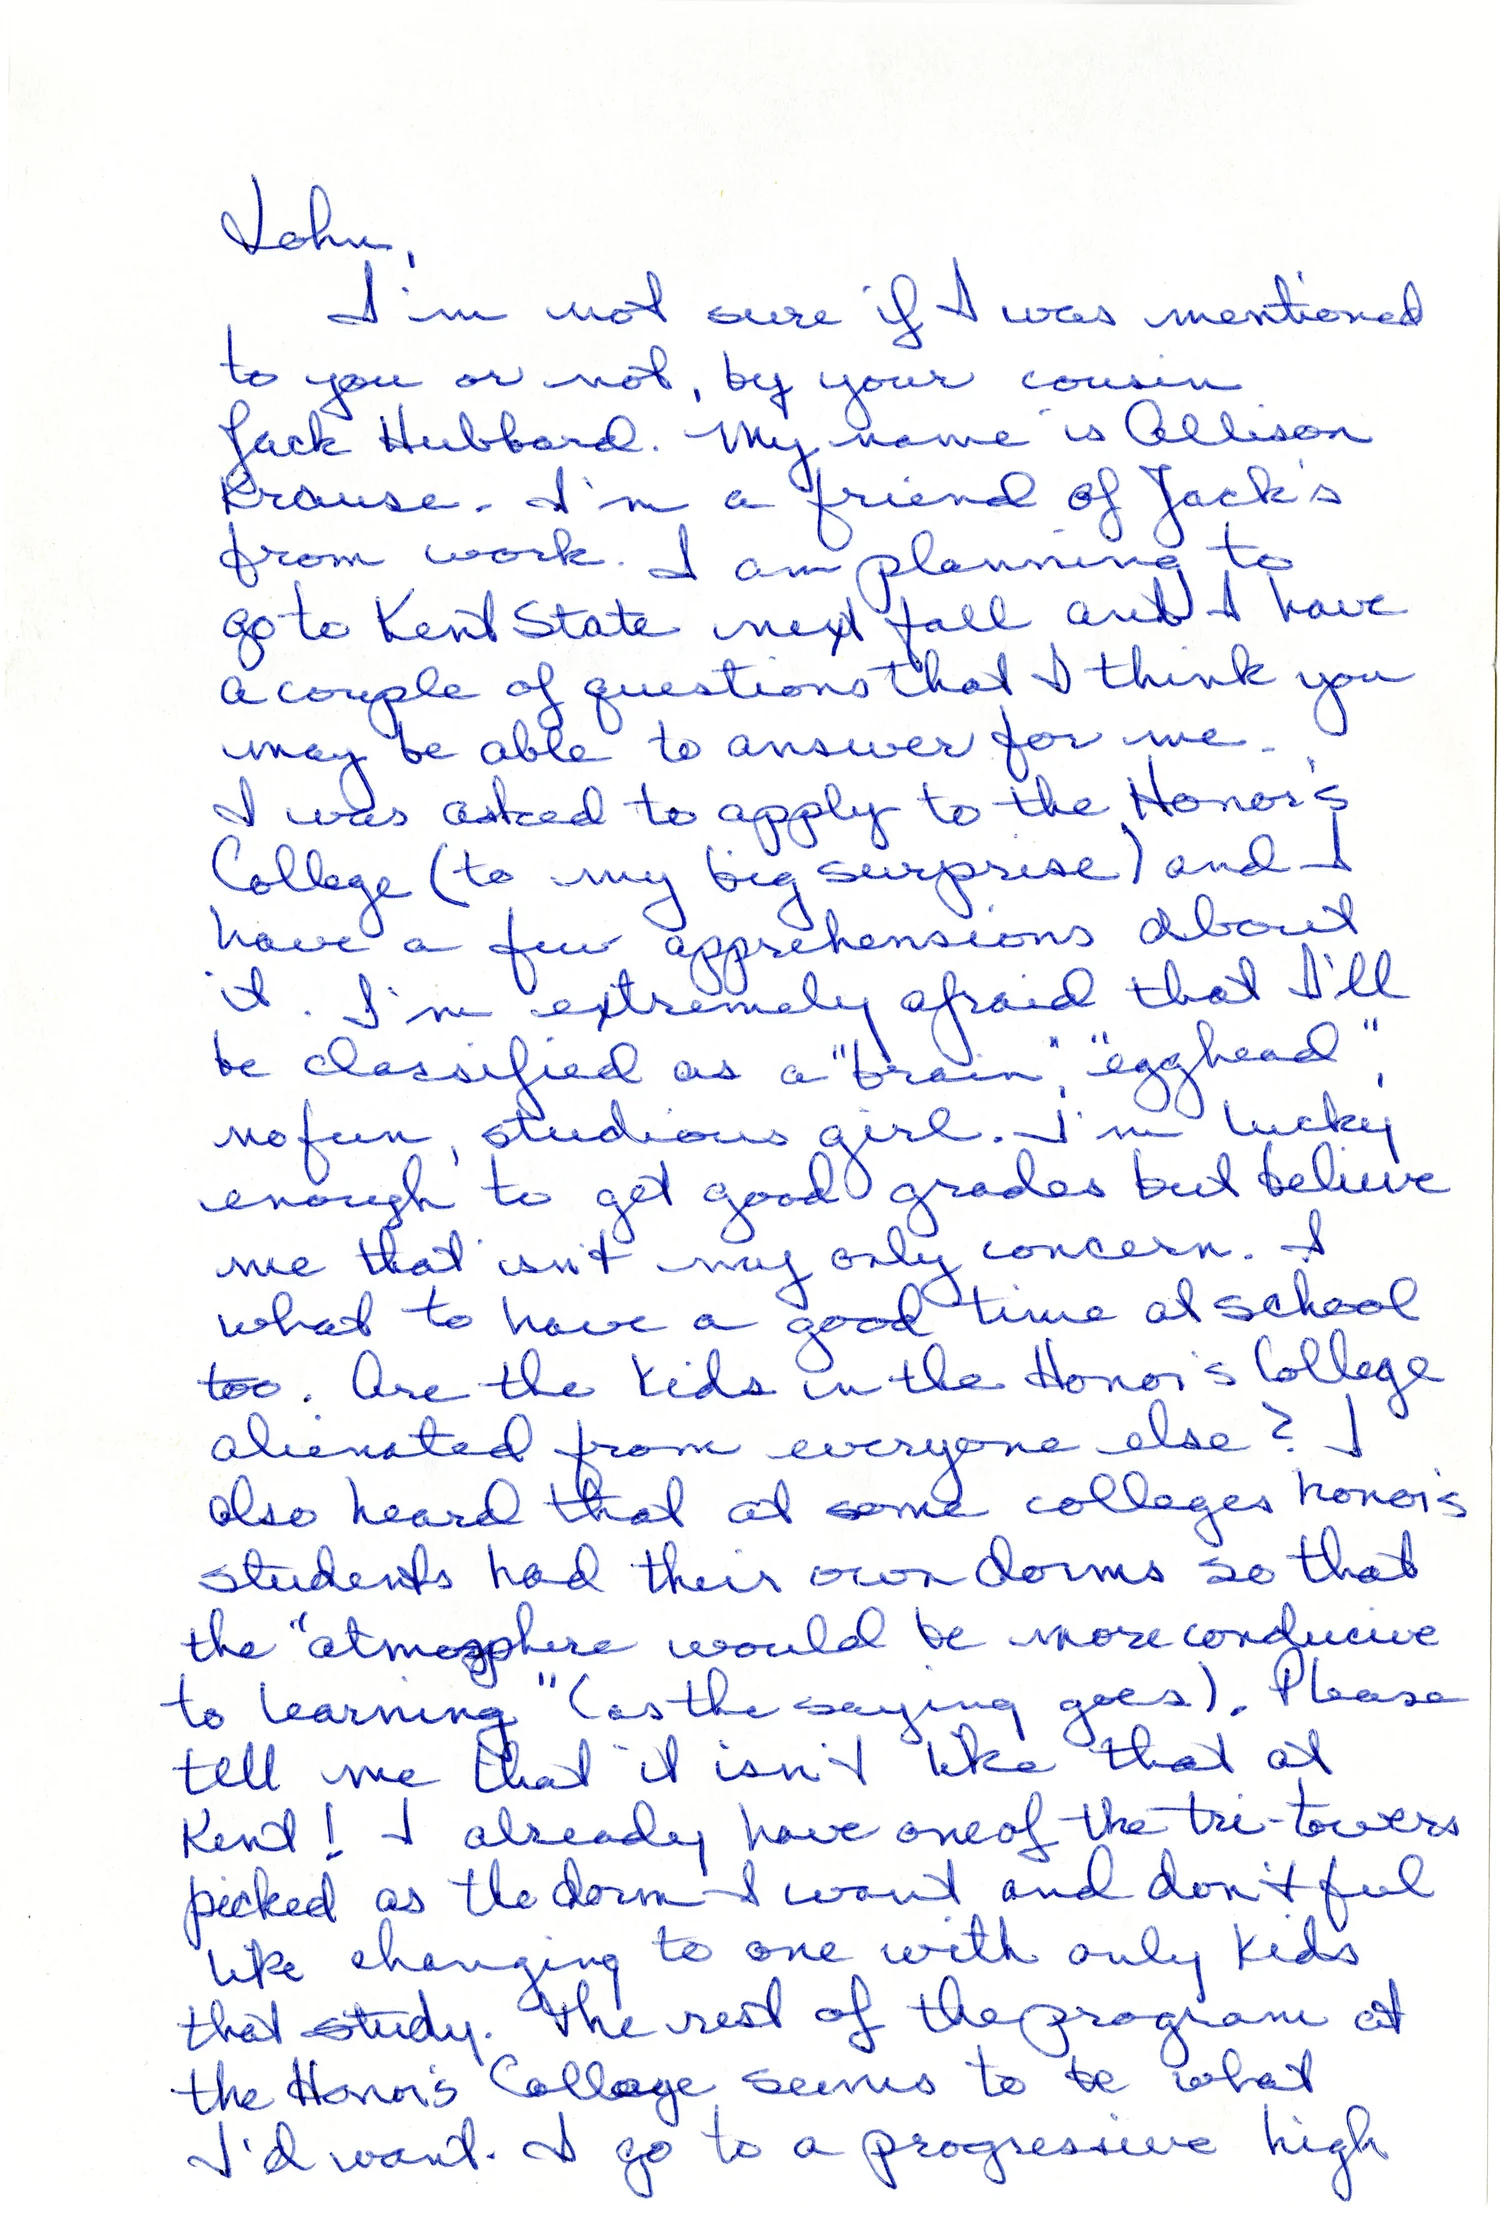 John,
I'm not sure if I was mentioned
to you or not, by your cousin
Jack Hubbard. My name is Allison
Krause. I'm a friend of Jack's
from work. I am planning to
go to Kent State next fall and I have
a couple of questions that I think you
may be able to answer for me.
I was asked to apply to the Honor's
College (to my big surprise) and I
have a few apprehensions about
it. I'm extremely afraid that I'll
be classified as a "brain", "egghead",
no fun, studious girl. I'm lucky
enough to get good grades but believe
me that isn't my only concern. I
what to have a good time at school
too. Are the kids in the Honor's College
alienated from everyone else? I
also heard that at some colleges honor's
students had their own dorms so that
the "atmosphere would be more conducive
to learning" (as the saying goes). Please
tell me that it isn't like that at
Kent! I already have one of the tri-towers
picked as the dorm I want and don't feel
like changing to one with only kids
that study. The rest of the program at
the Honor's College seems to be what
I'd want. I go to a progressive high